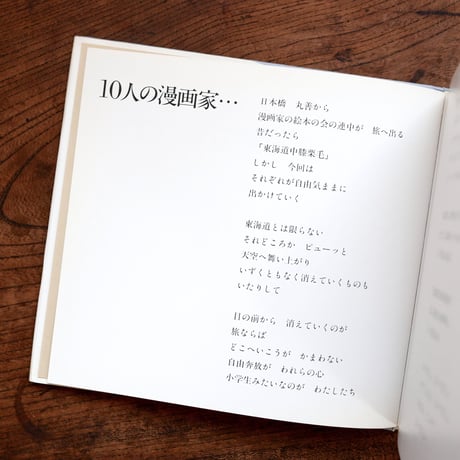 10人の漫画家…
日本橋　丸善から
漫画家の絵本の会の連中が　旅へ出る
昔だったら
「東海道中膝栗毛」
しかし　今回は
それぞれが自由気ままに
出かけていく
東海道とは限らない
それどころか　ピューッと
天空へ舞い上がり
いずくともなく消えていくものも
いたりして
目の前から　消えていくのが
旅ならば
どこへいこうが　かまわない
自由奔放が　われらの心
小学生みたいなのが　わたしたち